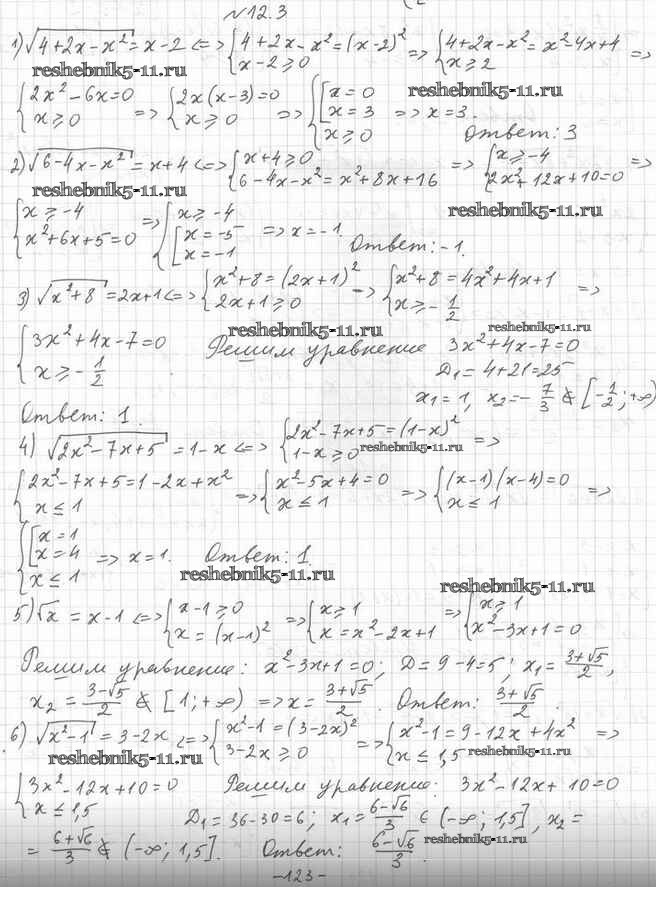 №12.3
1) √(4+2x-x²) = x-2 <=> { 4+2x-x² = (x-2)² ; x-2 ≥ 0 => { 4+2x-x² = x²-4x+4 ; x ≥ 2 =>
reshebnik5-11.ru reshebnik5-11.ru
{ 2x²-6x=0 ; x ≥ 0 => { 2x(x-3)=0 ; x ≥ 0 => { [ x=0 ; x=3 ; x ≥ 0 => x=3.
Ответ: 3
2) √(6-4x-x²) = x+4 <=> { x+4 ≥ 0 ; 6-4x-x² = x²+8x+16 => { x ≥ -4 ; 2x²+12x+10=0 =>
reshebnik5-11.ru
reshebnik5-11.ru
{ x ≥ -4 ; x²+6x+5=0 => { x ≥ -4 ; [ x=-5 ; x=-1 => x=-1.
Ответ: -1.
3) √(x²+8) = 2x+1 <=> { x²+8 = (2x+1)² ; 2x+1 ≥ 0 => { x²+8 = 4x²+4x+1 ; x ≥ -1/2 =>
reshebnik5-11.ru reshebnik5-11.ru
{ 3x²+4x-7=0 ; x ≥ -1/2 Решим уравнение 3x²+4x-7=0
D₁ = 4+21=25
x₁=1, x₂=-7/3 ∉ [-1/2; +∞)
Ответ: 1.
4) √(2x²-7x+5) = 1-x <=> { 2x²-7x+5 = (1-x)² ; 1-x ≥ 0 =>
reshebnik5-11.ru
{ 2x²-7x+5 = 1-2x+x² ; x ≤ 1 => { x²-5x+4=0 ; x ≤ 1 => { (x-1)(x-4)=0 ; x ≤ 1 =>
{ [ x=1 ; x=4 ; x ≤ 1 => x=1. Ответ: 1.
reshebnik5-11.ru reshebnik5-11.ru
5) √x = x-1 <=> { x-1 ≥ 0 ; x = (x-1)² => { x ≥ 1 ; x = x²-2x+1 => { x ≥ 1 ; x²-3x+1=0
Решим уравнение: x²-3x+1=0; D=9-4=5; x₁ = (3+√5)/2,
x₂ = (3-√5)/2 ∉ [1; +∞) => x = (3+√5)/2. Ответ: (3+√5)/2.
6) √(x²-1) = 3-2x <=> { x²-1 = (3-2x)² ; 3-2x ≥ 0 => { x²-1 = 9-12x+4x² ; x ≤ 1,5 =>
reshebnik5-11.ru reshebnik5-11.ru
{ 3x²-12x+10=0 ; x ≤ 1,5 Решим уравнение: 3x²-12x+10=0
D₁ = 36-30=6; x₁ = (6-√6)/3 ∈ (-∞; 1,5], x₂ =
= (6+√6)/3 ∉ (-∞; 1,5]. Ответ: (6-√6)/3.
reshebnik5-11.ru
-123-